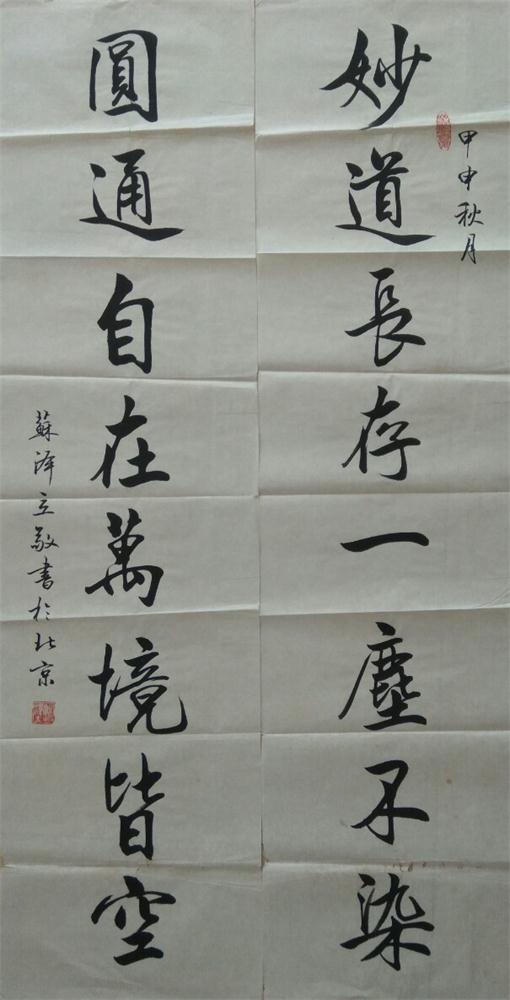 甲申秋月
妙道長存一塵不染
圓通自在萬境皆空
蘇澤立敬書於北京